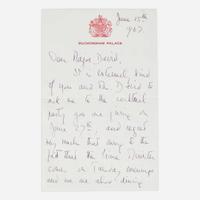 BUCKINGHAM PALACE
June 15th
1967
Dear Major David,
It is extremely kind
of you and Mrs David to
ask me to the cocktail
party you are giving on
June 27th, and regret
very much that owing to the
fact that the Prime Minister
comes on Tuesday evenings
and we are also dining